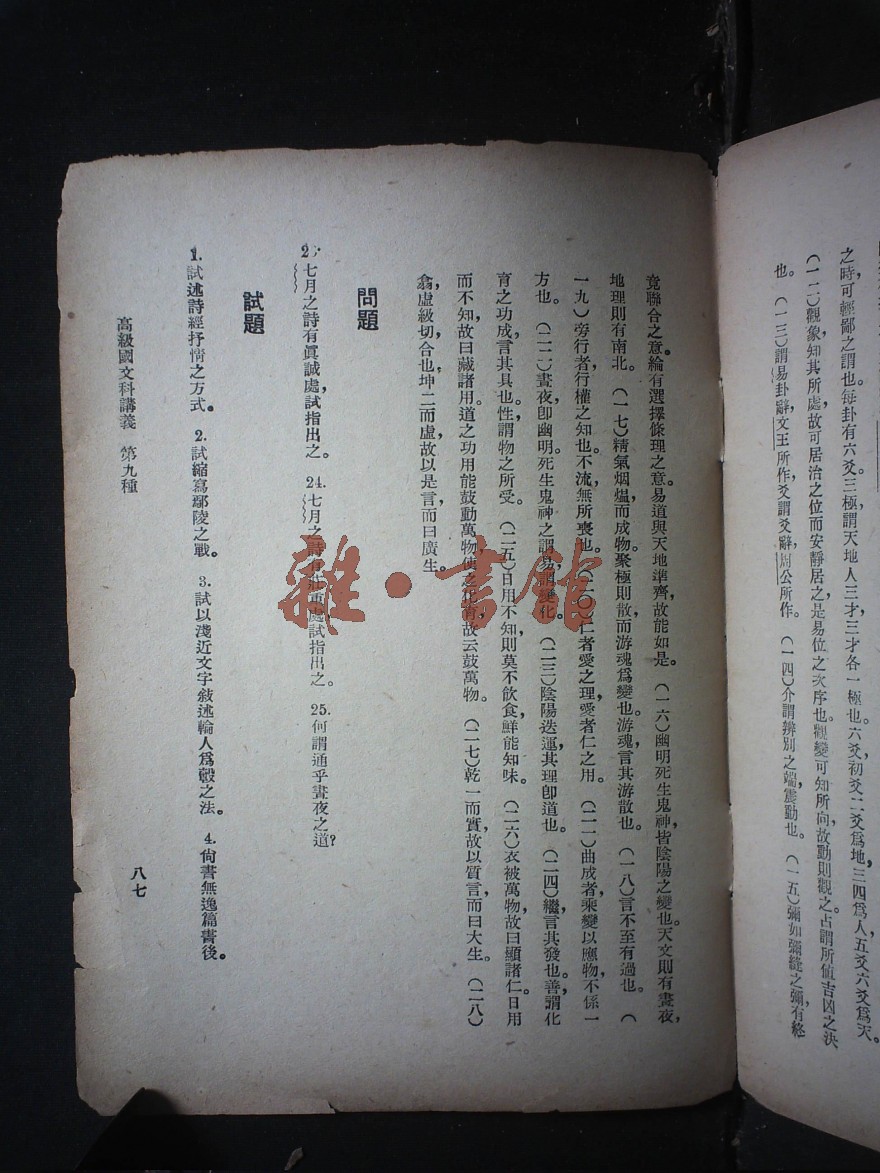 之時可輕鄙之謂也。每卦有六爻。三極，謂天地人三才，三才各一極也。六爻，初爻二爻爲地，三四爲人，五爻六爻爲天。
(一二)觀象知其所處，故可居治之位而安靜居之，是易位之次序也。觀變可知所向，故動則觀之。占謂所值吉凶之決
也。(一三)謂易卦辭，文王所作，爻謂爻辭，周公所作。(一四)介謂辨別之端，震動也。(一五)彌如彌縫之彌，有終
竟聯合之意。綸有選擇條理之意。易道與天地準齊，故能如是。(一六)幽明死生鬼神，皆陰陽之變也。天文則有晝夜，
地理則有南北。(一七)精氣烟熅而成物。聚極則散，而游魂爲變也。游魂，言其游散也。(一八)言不至有過也。(
一九)旁行者，行權之知也。不流，無所喪也。(二〇)仁者愛之理，愛者仁之用。(二一)曲成者，乘變以應物，不係一
方也。(二二)晝夜卽幽明死生鬼神之謂。易謂變化。(二三)陰陽迭運，其理卽道也。(二四)繼言其發也。善，謂化
育之功成，言其具也。性，謂物之所受。(二五)日用不知，則莫不飲食，鮮能知味。(二六)衣被萬物，故曰顯諸仁，日用
而不知，故曰藏諸用。道之功用，能鼓動萬物，使之化育，故云鼓萬物。(二七)乾一而實，故以質言，而曰大生。(二八)
翕，虛級切，合也。坤二而虛，故以是言，而曰廣生。
問題
23.七月之詩有眞誠處，試指出之。 24.七月之詩有莊重處，試指出之。 25.何謂通乎晝夜之道？
試題
1.試述詩經抒情之方式。 2.試縮寫鄢陵之戰。 3.試以淺近文字敍述輪人爲轂之法。 4.尙書無逸篇書後。
高級國文科講義 第九種
八七
雜·書館